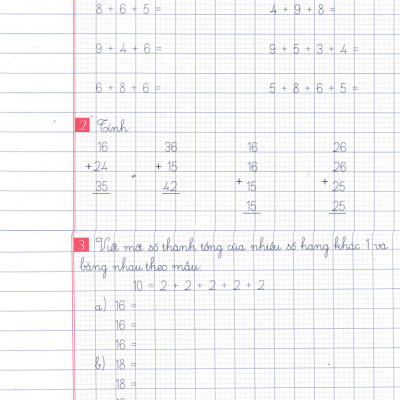 8 + 6 + 5 = 4 + 9 + 8 =
9 + 4 + 6 = 9 + 5 + 3 + 4 =
6 + 8 + 6 = 5 + 8 + 6 + 5 =
2 Tính
16 36 16 26
+24 + 15 16 26
35 42 + 15 + 25
15 25
3 Viết một số thành tổng của nhiều số hạng khác 1 và
bằng nhau theo mẫu:
10 = 2 + 2 + 2 + 2 + 2
a) 16 =
16 =
16 =
b) 18 =
18 =